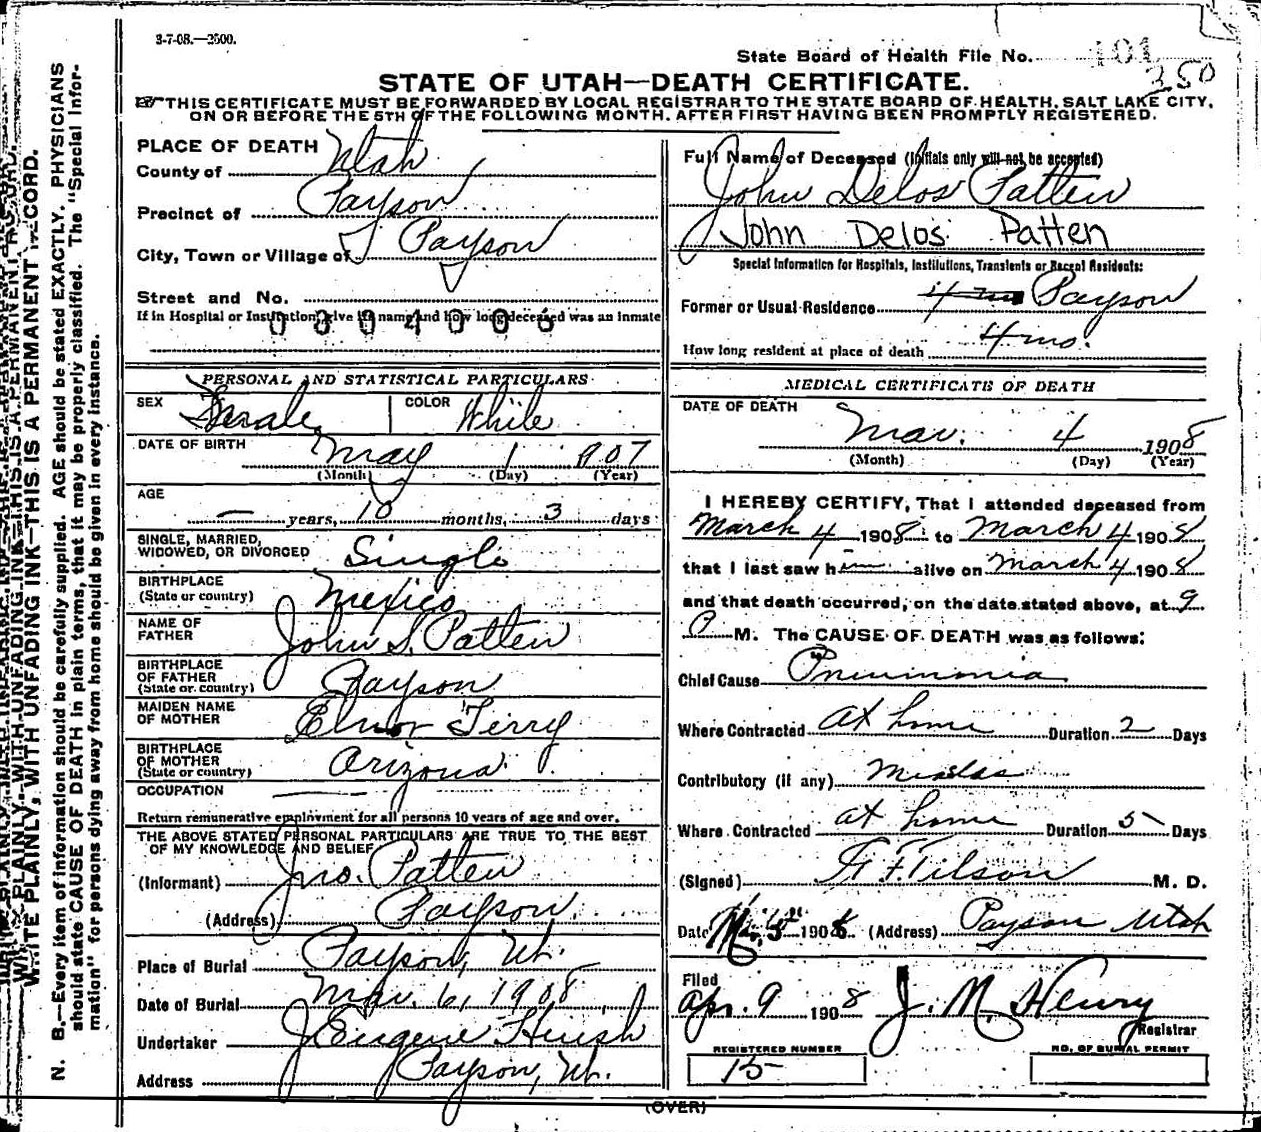 3-7-08.—2500.
State Board of Health File No. 101
250
STATE OF UTAH—DEATH CERTIFICATE.
THIS CERTIFICATE MUST BE FORWARDED BY LOCAL REGISTRAR TO THE STATE BOARD OF HEALTH, SALT LAKE CITY,
ON OR BEFORE THE 5TH OF THE FOLLOWING MONTH, AFTER FIRST HAVING BEEN PROMPTLY REGISTERED.
PLACE OF DEATH
County of Utah
Precinct of Payson
City, Town or Village of Payson
Street and No.
If in Hospital or Institution, give its name and how long deceased was an inmate
0304006
PERSONAL AND STATISTICAL PARTICULARS
SEX Male COLOR White
DATE OF BIRTH May 1 1907
(Month) (Day) (Year)
AGE
— years, 10 months, 3 days
SINGLE, MARRIED,
WIDOWED, OR DIVORCED Single
BIRTHPLACE
(State or country) Mexico
NAME OF
FATHER John S. Patten
BIRTHPLACE
OF FATHER
(State or country) Payson
MAIDEN NAME
OF MOTHER Elnor Terry
BIRTHPLACE
OF MOTHER
(State or country) Arizona
OCCUPATION —
Return remunerative employment for all persons 10 years of age and over.
THE ABOVE STATED PERSONAL PARTICULARS ARE TRUE TO THE BEST
OF MY KNOWLEDGE AND BELIEF
(Informant) Jno. Patten
(Address) Payson
Place of Burial Payson, Ut.
Date of Burial Mar. 6, 1908
Undertaker J Eugene Huish
Address Payson, Ut.
Full Name of Deceased (Initials only will not be accepted)
John Delos Patten
John Delos Patten
Special Information for Hospitals, Institutions, Transients or Recent Residents:
Former or Usual Residence Payson
How long resident at place of death 4 mo.
MEDICAL CERTIFICATE OF DEATH
DATE OF DEATH
Mar. 4 1908
(Month) (Day) (Year)
I HEREBY CERTIFY, That I attended deceased from
March 4 1908 to March 4 1908
that I last saw him alive on March 4 1908
and that death occurred, on the date stated above, at 9
P M. The CAUSE OF DEATH was as follows:
Chief Cause Pneumonia
Where Contracted at home Duration 2 Days
Contributory (if any) Measles
Where Contracted at home Duration 5 Days
(Signed) F. Tilson M. D.
Date Mar. 5" 1908 (Address) Payson Utah
Filed
Apr. 9 1908 J. M. Henry
Registrar
REGISTERED NUMBER NO. OF BURIAL PERMIT
15
(OVER)
WRITE PLAINLY, WITH UNFADING INK—THIS IS A PERMANENT RECORD.
N. B.—Every item of information should be carefully supplied. AGE should be stated EXACTLY. PHYSICIANS
should state CAUSE OF DEATH in plain terms, that it may be properly classified. The "Special Infor-
mation" for persons dying away from home should be given in every instance.